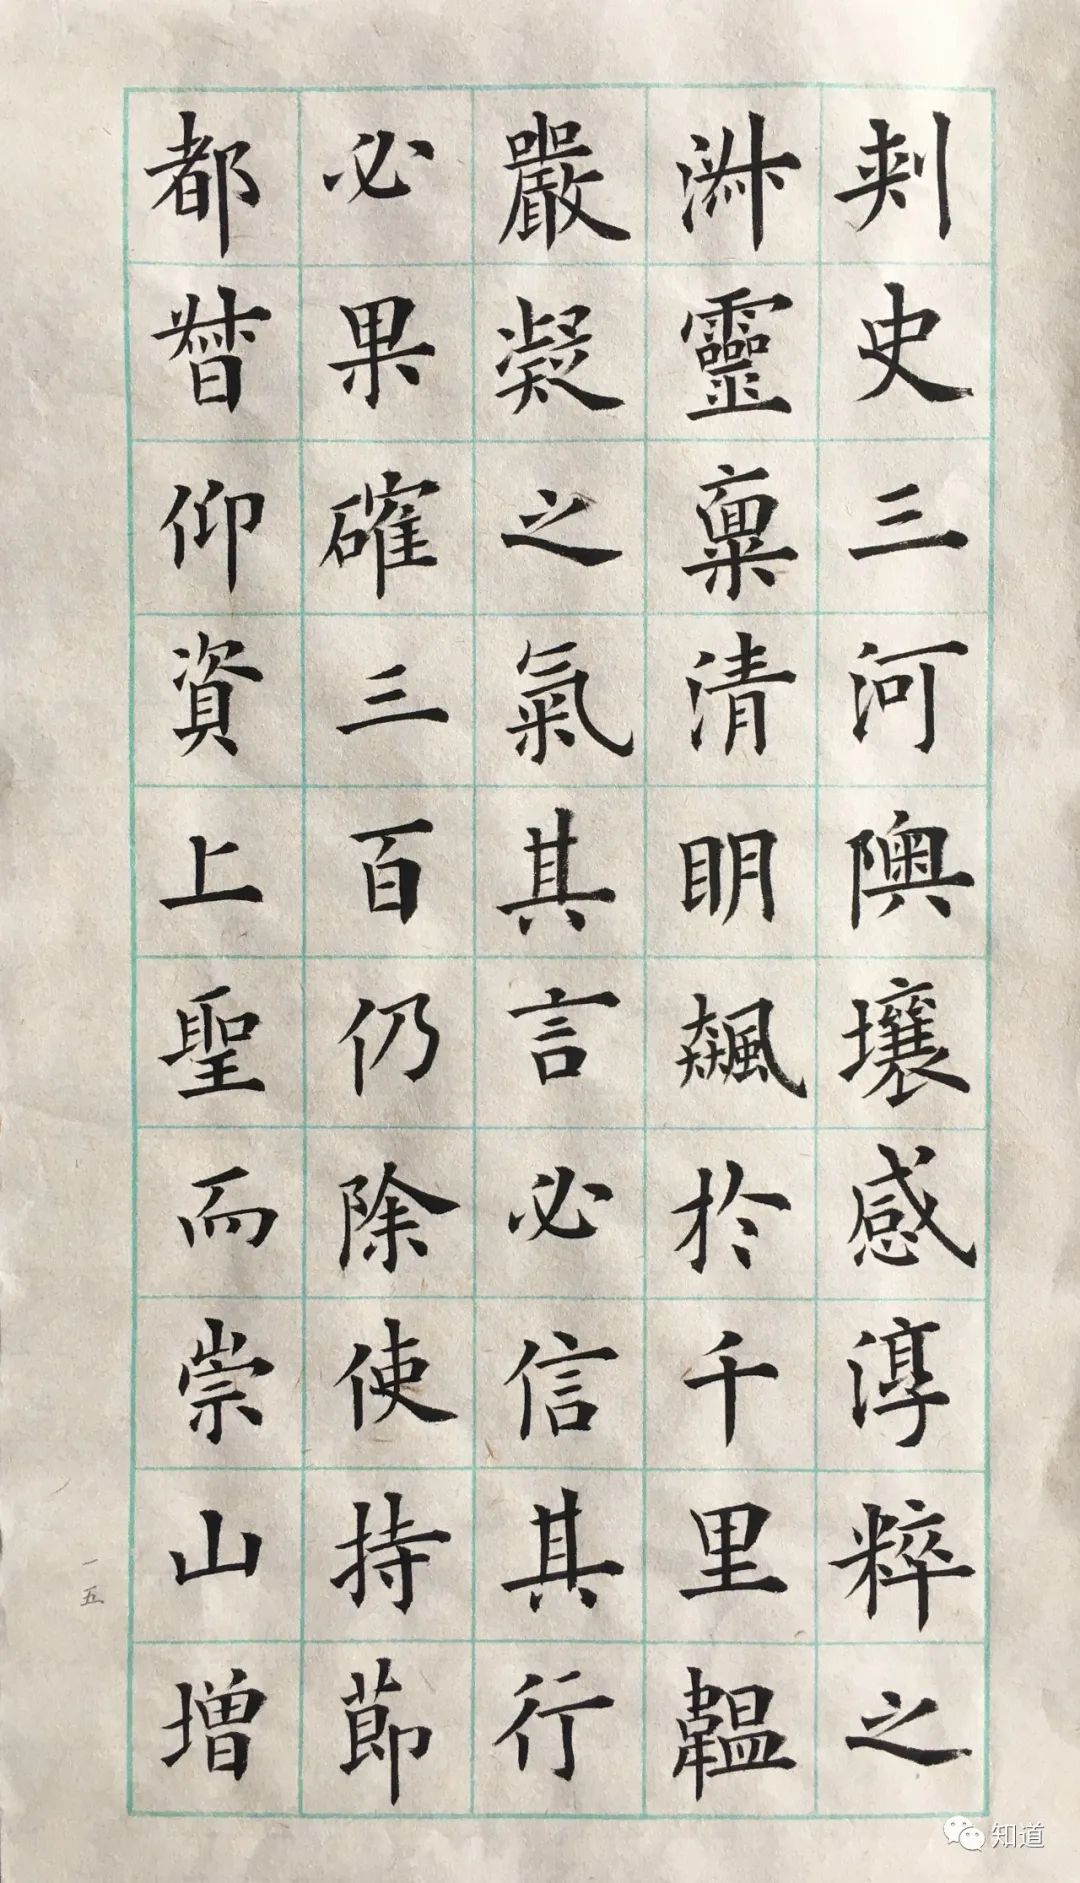 刺史三河隩壤感淳粹之
淑靈稟清明飆於千里韞
嚴凝之氣其言必信其行
必果確三百仍除使持節
都督仰資上聖而崇山增
一五
知道